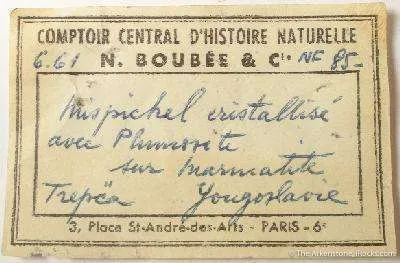 COMPTOIR CENTRAL D'HISTOIRE NATURELLE
6.61 N. BOUBÉE & Cie NF 85-
Mispickel cristallisé
avec Plumosite
sur marmatite
Trepča Yougoslavie
3, Place St-André-des-Arts - PARIS - 6e
© The Arkenstone, iRocks.com